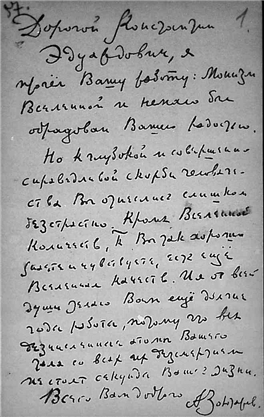 57. 1.
Дорогой Константин
Эдуардович, я
прочёл Вашу работу: Монизм
Вселенной и немало был
обрадован Вашею радостью.
Но к глубокой и совершенно
справедливой скорби человече-
ства Вы отнеслись слишком
безстрастно. Кроме Вселенной
Количеств, Вы так хорошо
знаете и чувствуете, есть ещё
Вселенная Качеств. И я от всей
души желаю Вам ещё долгие
года работы, потому что все
безчисленные атомы Вашего
тела со всем их безсмертием
не стоят секунды Вашей Жизни.
Всего Вам доброго